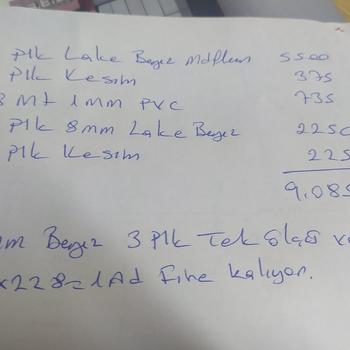 Plk Lake Beyaz Mdflam 5500
Plk Kesim 375
8 Mt 1mm PVC 735
Plk 8mm Lake Beyaz 2250
Plk Kesim 225
9.085
Beyaz 3 Plk Tek ölçü
x228=1Ad Fire kalıyor.